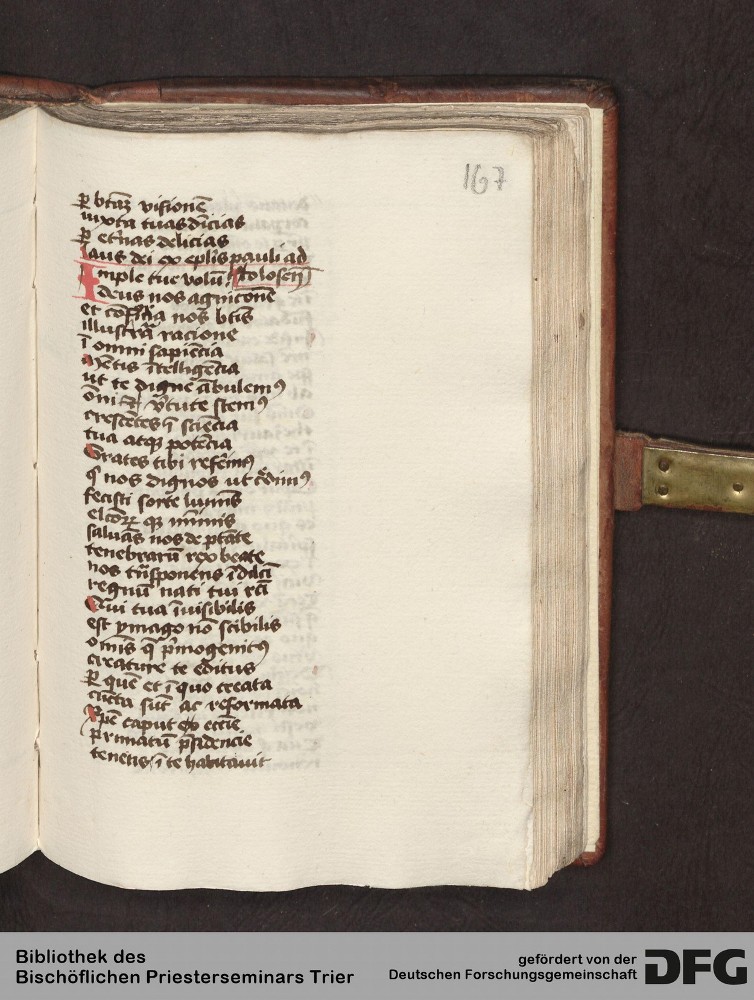 167
ꝑ btãz visionē
iuxta tuas dicias
ꝑ et'nas delicias
Laus dei ex eplis pauli ad
Imple tue volū Colosen
deus nos agnicōne
et nos btis
illustrā racione
ī omni sapiēcia
Mētis ītelligēcia
ut te digne ābulemꝰ
ōni v'tute stemꝰ
crescētes ī sciēcia
tua atqꝫ potēcia
Grates tibi refēimꝰ
nos dignos ut
fecisti sorte luminis
saluās nos de ptāte
tenebrarū rex beate
nos trāsponens ī
regnū nati tui
Qui tua īuisibilis
est ymago nō scibilis
omīs p'mogenitꝰ
creature te editus
ꝑ quē et ī quo creata
cūcta sūt ac reformata
Xpē caput ex eccīe
primatū p'sidencie
tenens ī te habitauit
Bibliothek des
Bischöflichen Priesterseminars Trier
gefördert von der
Deutschen Forschungsgemeinschaft
DFG